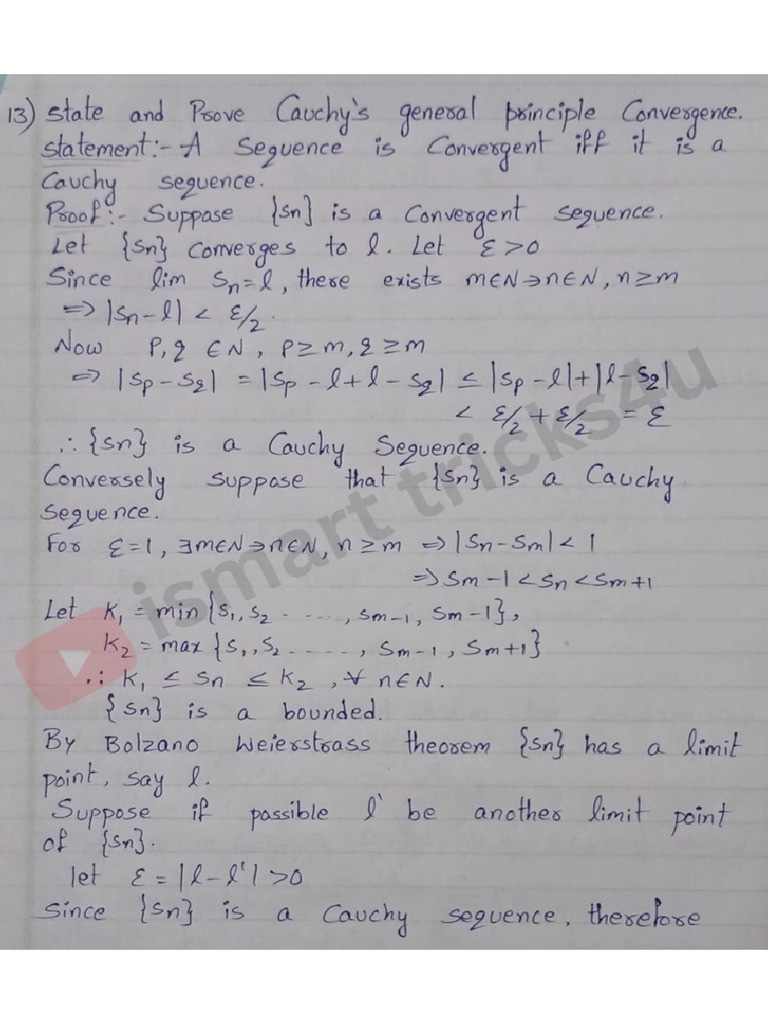 13) State and Prove Cauchy's general principle Convergence.
Statement:- A Sequence is Convergent iff it is a
Cauchy sequence.
Proof:- Suppose {Sn} is a Convergent sequence.
Let {Sn} Converges to l. Let ε>0
Since lim Sn=l, there exists m∈N∋n∈N, n≥m
⇒ |Sn-l| < ε/2.
Now P,q ∈N, P≥m, q≥m
⇒ |Sp-Sq| = |Sp-l+l-Sq| ≤ |Sp-l|+|l-Sq|
< ε/2 + ε/2 = ε
∴ {Sn} is a Cauchy Sequence.
Conversely suppose that {Sn} is a Cauchy
sequence.
For ε=1, ∃m∈N∋n∈N, n≥m ⇒ |Sn-Sm|< 1
⇒ Sm-1<Sn<Sm+1
Let K1 = min{S1, S2 ......, Sm-1, Sm-1},
K2 = max {S1, S2 ......, Sm-1, Sm+1}
∴ K1 ≤ Sn ≤ K2, ∀ n∈N.
{Sn} is a bounded.
By Bolzano Weierstrass theorem {Sn} has a limit
point, say l.
Suppose if possible l' be another limit point
of {Sn}.
let ε = |l-l'|>0
Since {Sn} is a Cauchy sequence, therefore
ismart tricks4u